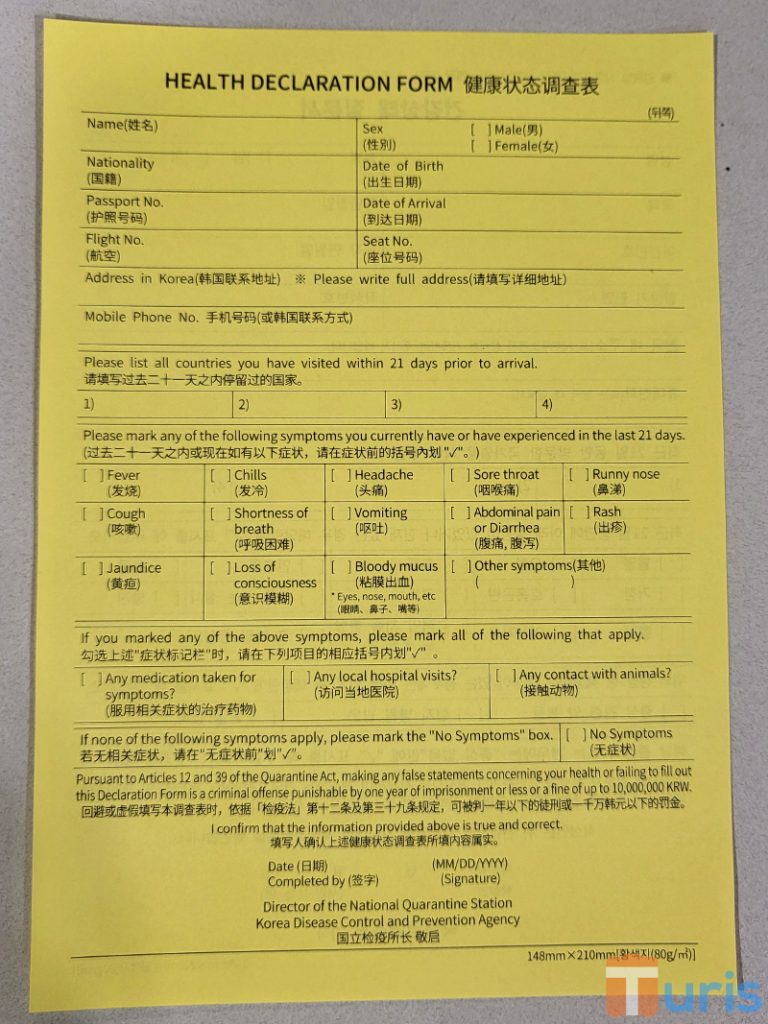 HEALTH DECLARATION FORM 健康状态调查表
(뒤쪽)
Name(姓名)
Sex [ ] Male(男)
(性別) [ ] Female(女)
Nationality
(国籍)
Date of Birth
(出生日期)
Passport No.
(护照号码)
Date of Arrival
(到达日期)
Flight No.
(航空)
Seat No.
(座位号码)
Address in Korea(韩国联系地址) ※ Please write full address(请填写详细地址)
Mobile Phone No. 手机号码(或韩国联系方式)
Please list all countries you have visited within 21 days prior to arrival.
请填写过去二十一天之内停留过的国家。
1) 2) 3) 4)
Please mark any of the following symptoms you currently have or have experienced in the last 21 days.
(过去二十一天之内或现在如有以下症状，请在症状前的括号內划"✓"。)
[ ] Fever
(发烧)
[ ] Chills
(发冷)
[ ] Headache
(头痛)
[ ] Sore throat
(咽喉痛)
[ ] Runny nose
(鼻涕)
[ ] Cough
(咳嗽)
[ ] Shortness of
breath
(呼吸困难)
[ ] Vomiting
(呕吐)
[ ] Abdominal pain
or Diarrhea
(腹痛, 腹泻)
[ ] Rash
(出疹)
[ ] Jaundice
(黄疸)
[ ] Loss of
consciousness
(意识模糊)
[ ] Bloody mucus
(粘膜出血)
* Eyes, nose, mouth, etc
(眼睛、鼻子、嘴等)
[ ] Other symptoms(其他)
( )
If you marked any of the above symptoms, please mark all of the following that apply.
勾选上述"症状标记栏"时，请在下列项目的相应括号内划"✓" 。
[ ] Any medication taken for
symptoms?
(服用相关症状的治疗药物)
[ ] Any local hospital visits?
(访问当地医院)
[ ] Any contact with animals?
(接触动物)
If none of the following symptoms apply, please mark the "No Symptoms" box.
若无相关症状，请在"无症状前"划"✓"。
[ ] No Symptoms
(无症状)
Pursuant to Articles 12 and 39 of the Quarantine Act, making any false statements concerning your health or failing to fill out
this Declaration Form is a criminal offense punishable by one year of imprisonment or less or a fine of up to 10,000,000 KRW.
回避或虚假填写本调查表时，依据「检疫法」第十二条及第三十九条规定，可被判一年以下的徒刑或一千万韩元以下的罚金。
I confirm that the information provided above is true and correct.
填写人确认上述健康状态调查表所填内容属实。
Date (日期) (MM/DD/YYYY)
Completed by (签字) (Signature)
Director of the National Quarantine Station
Korea Disease Control and Prevention Agency
国立检疫所长 敬启
148mm×210mm[황색지(80g/㎡)]
Turis